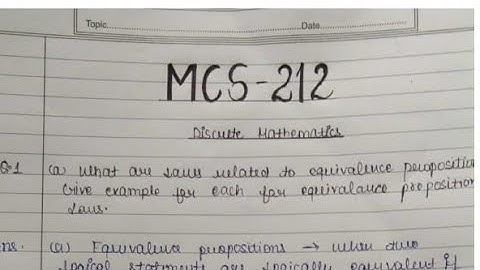 Topic Date
MCS-212
Discrete Mathematics
Q.1 (a) What are laws related to equivalence preposition
Give example for each for equivalance preposition
Laws.
ns. (a) Equivalence prepositions → when two
logical statements are logically equivalent if